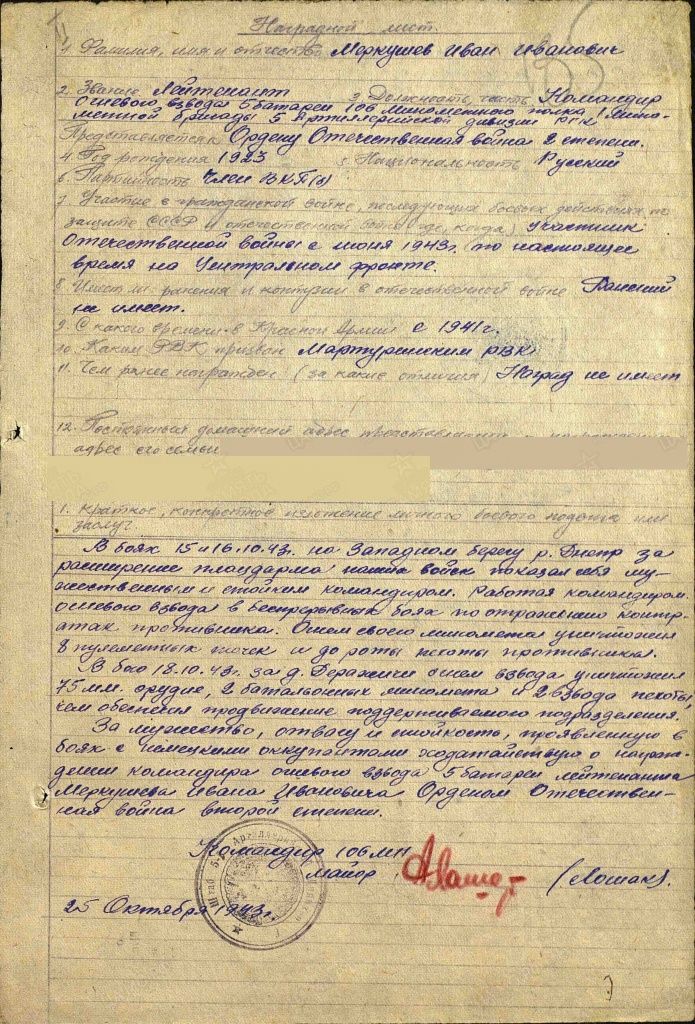 Наградной лист.
1. Фамилия, имя и отчество Меркушев Иван Иванович
2. Звание Лейтенант 3. Должность, часть Командир
огневого взвода 5 батареи 106 минометного полка 1 мино-
метной бригады 5 Артиллерийской дивизии РГК
Представляется к Ордену Отечественная война 2 степени.
4. Год рождения 1923 5. Национальность Русский
6. Партийность Член ВКП(б)
7. Участие в гражданской войне, последующих боевых действиях по
защите СССР и отечественной войне (где, когда) Участник
Отечественной войны с июня 1943г. по настоящее
время на Центральном фронте.
8. Имеет ли ранения и контузии в отечественной войне Ранений
не имеет.
9. С какого времени в Красной Армии с 1941г.
10. Каким РВК призван РВК
11. Чем ранее награжден (за какие отличия) Наград не имеет
12. Постоянный домашний адрес представляемого к награждению
адрес его семьи
1. Краткое, конкретное изложение личного боевого подвига или
заслуг
В боях 15 и 16.10.43г. на Западном берегу р. Днепр за
расширение плацдарма наших войск показал себя му-
жественным и стойким командиром. Работая командиром
огневого взвода в беспрерывных боях по отражению контр-
атак противника. Огнем своего миномета уничтожил
8 пулеметных точек и до роты пехоты противника.
В бою 18.10.43г. за д. огнем взвода уничтожил
75 мм. орудие, 2 батальонных миномета и 2 взвода пехоты,
чем обеспечил продвижение поддерживаемого подразделения.
За мужество, отвагу и стойкость, проявленную в
боях с немецкими оккупантами ходатайствую о награж-
дении командира огневого взвода 5 батареи лейтенанта
Меркушева Ивана Ивановича Орденом Отечествен-
ная война второй степени.
Командир 106 МП
майор (Лошак).
25 Октября 1943г.